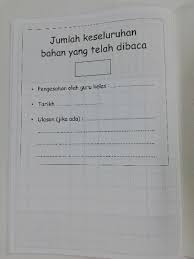 Jumlah keseluruhan
bahan yang telah dibaca
• Pengesahan oleh guru kelas
• Tarikh
• Ulasan (jika ada) :